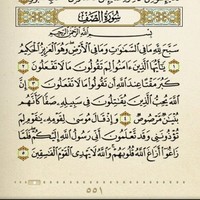 سُورَةُ الصَّفِّ
بِسْمِ اللَّهِ الرَّحْمَٰنِ الرَّحِيمِ
سَبَّحَ لِلَّهِ مَا فِي السَّمَٰوَٰتِ وَمَا فِي الْأَرْضِ وَهُوَ الْعَزِيزُ الْحَكِيمُ
١ يَٰٓأَيُّهَا الَّذِينَ ءَامَنُوا لِمَ تَقُولُونَ مَا لَا تَفْعَلُونَ ٢
كَبُرَ مَقْتًا عِندَ اللَّهِ أَن تَقُولُوا مَا لَا تَفْعَلُونَ ٣ إِنَّ
اللَّهَ يُحِبُّ الَّذِينَ يُقَٰتِلُونَ فِي سَبِيلِهِ صَفًّا كَأَنَّهُم
بُنْيَٰنٌ مَّرْصُوصٌ ٤ وَإِذْ قَالَ مُوسَىٰ لِقَوْمِهِ يَٰقَوْمِ لِمَ
تُؤْذُونَنِي وَقَد تَّعْلَمُونَ أَنِّي رَسُولُ اللَّهِ إِلَيْكُمْ فَلَمَّا
زَاغُوا أَزَاغَ اللَّهُ قُلُوبَهُمْ وَاللَّهُ لَا يَهْدِي الْقَوْمَ الْفَٰسِقِينَ ٥
٥٥١